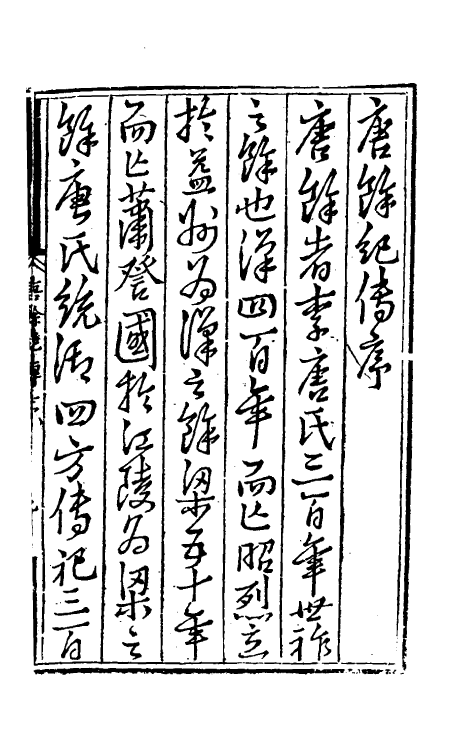 唐餘紀傳序
唐餘者李唐氏三百年世祚
之餘也漢四百年而亡昭烈立
於益州為漢之餘梁五十年
而亡蕭詧國於江陵為梁之
餘唐氏統御四方傳祀三百